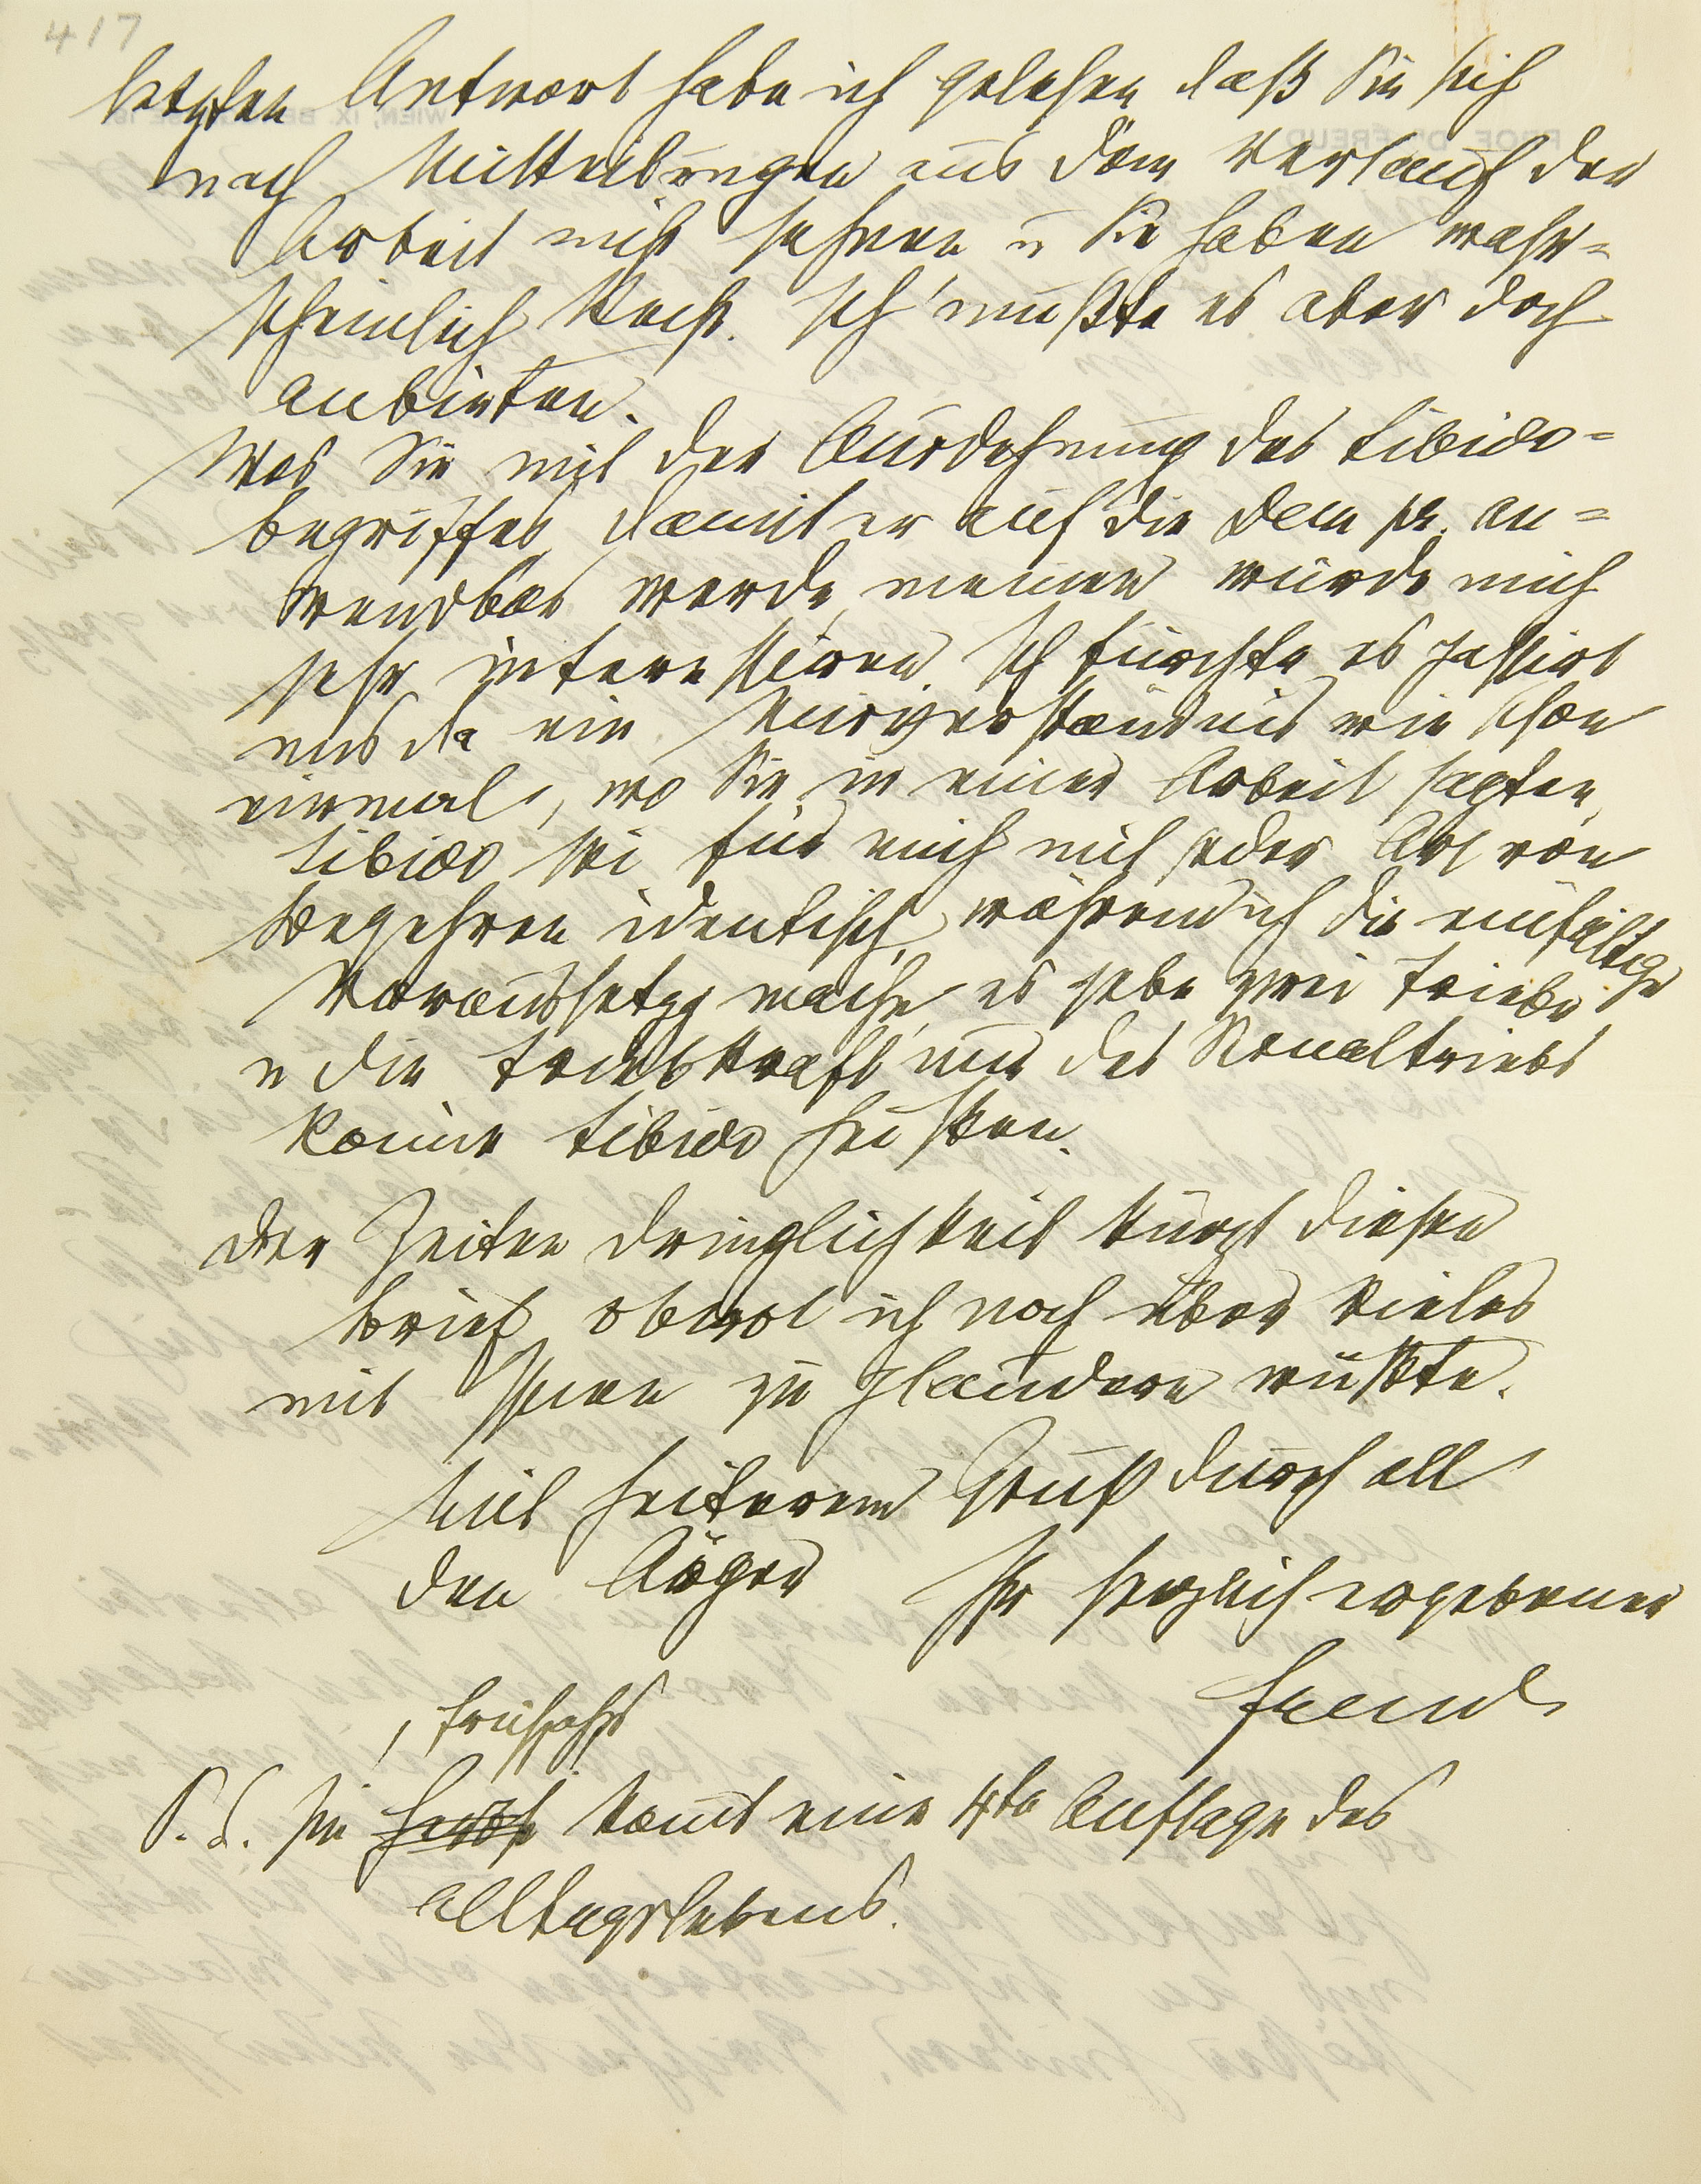 417
letzten Antwort habe ich gelesen daß Sie sich
nach Mitteilungen aus dem Verlauf der
Arbeit nicht sehnen u Sie haben wahr=
scheinlich Recht. Ich mußte es aber doch
anbieten.
Was Sie mit der Ausdehnung des Libido=
begriffes, damit er auf die Dem pr. an=
wendbar werde, meinen würde mich
sehr interessiren. Ich fürchte es passirt
uns da ein Mißverständnis wie schon
einmal, wo Sie in einer Arbeit sagten,
Libido sei für mich mit jeder Art von
Begehren identisch, während ich die einfältige
Voraussetzg mache, es gebe zwei Triebe
u die Triebkraft nur des Sexualtriebs
könne Libido heißen.
Der Zeiten Dringlichkeit kürzt diesen
Brief obwol ich noch über Vieles
mit Ihnen zu plaudern wüßte.
Mit heiterem Gruß durch all
den Ärger Ihr herzlich ergebener
Freud
Frühjahr
P.S. Im Herbst kom̄t eine 4te Auflage des
Alltagslebens.